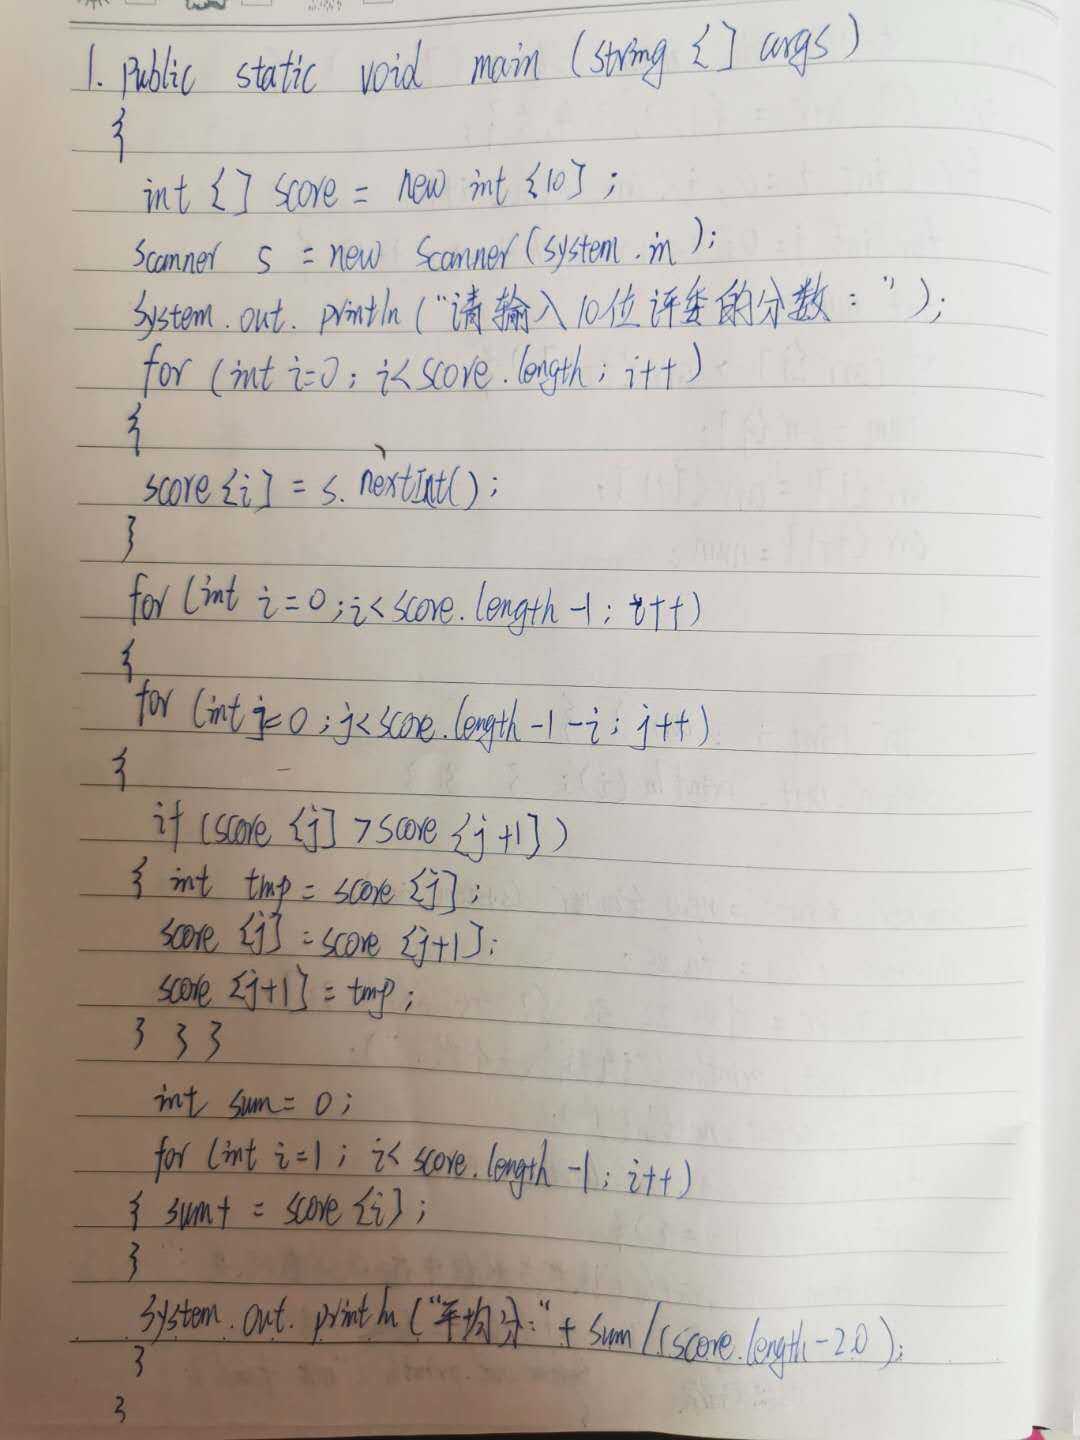 1. Public static void main (string {] args)
{
int {] score = new int {10] ;
Scanner s = new Scanner(system.in);
System.out.println("请输入10位评委的分数：");
for (int i=0; i<score.length; i++)
{
score{i] = s.nextInt();
}
for (int i=0; i<score.length-1; i++)
{
for (int j=0; j<score.length-1-i; j++)
{
if (score {j] > score {j+1])
{ int tmp = score {j];
score {j] = score {j+1];
score {j+1] = tmp;
} } }
int sum = 0;
for (int i=1; i< score.length-1; i++)
{ sum+ = score {i];
}
System.out.println("平均分:" + sum/(score.length-2.0);
}
}